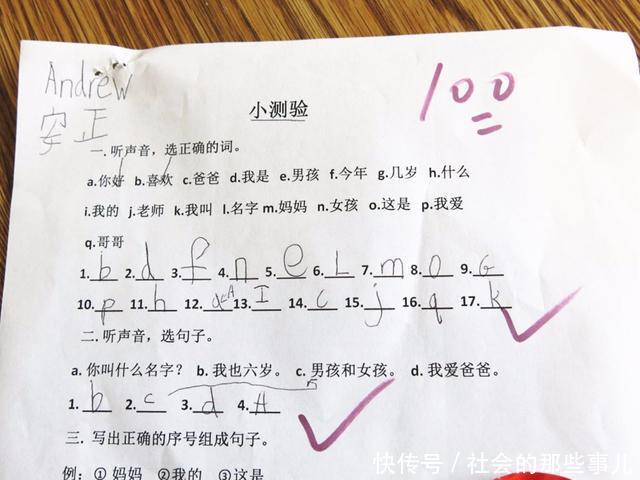 Andrew
安正
100
小测验
一.听声音，选正确的词。
a.你好 b.喜欢 c.爸爸 d.我是 e.男孩 f.今年 g.几岁 h.什么
i.我的 j.老师 k.我叫 l.名字 m.妈妈 n.女孩 o.这是 p.我爱
q.哥哥
1. b 2. d 3. f 4. n 5. e 6. L 7. m 8. o 9. G
10. p 11. h 12. A 13. I 14. c 15. j 16. q 17. k
二.听声音，选句子。
a. 你叫什么名字？ b. 我也六岁。 c. 男孩和女孩。 d. 我爱爸爸。
1. b 2. c 3. d 4. A
三. 写出正确的序号组成句子。
例：①妈妈 ②我的 ③这是
快传号／社会的那些事儿